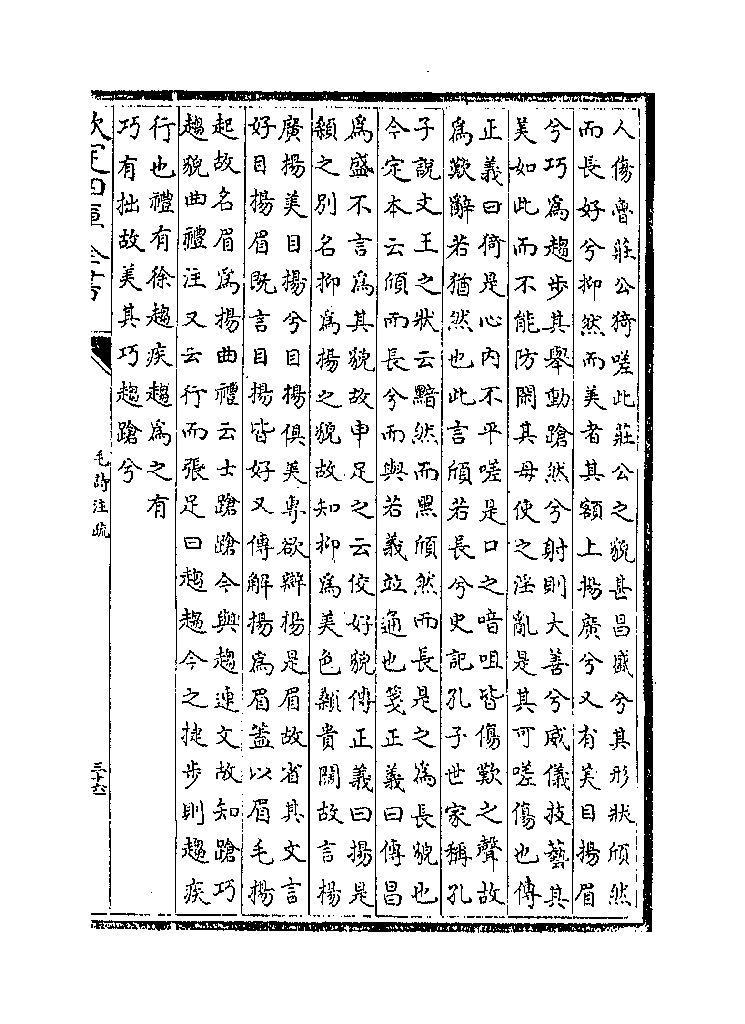 人傷魯莊公猗嗟此莊公之貌甚昌盛兮其形狀頎然
而長好兮抑然而美者其額上揚廣兮又有美目揚眉
兮巧為趨步其舉動蹌然兮射則大善兮威儀技藝其
美如此而不能防閑其母使之淫亂是其可嗟傷也傳
正義曰猗是心内不平嗟是口之喑咀皆傷歎之聲故
為歎辭若猶然也此言頎若長兮史記孔子世家稱孔
子說文王之狀云黯然而黑頎然而長是之為長貌也
今定本云頎而長兮而與若義竝通也箋正義曰傳昌
為盛不言為其貌故申足之云佼好貌傳正義曰揚是
顙之别名抑為揚之貌故知抑為美色顙貴闊故言揚
廣揚美目揚兮目揚俱美專欲辯揚是眉故省其文言
好目揚眉既言目揚皆好又傳解揚為眉蓋以眉毛揚
起故名眉為揚曲禮云士蹌蹌今與趨連文故知蹌巧
趨貌曲禮注又云行而張足曰趨趨今之捷步則趨疾
行也禮有徐趨疾趨為之有
巧有拙故美其巧趨蹌兮
欽定四庫全書
毛詩注疏
三十六